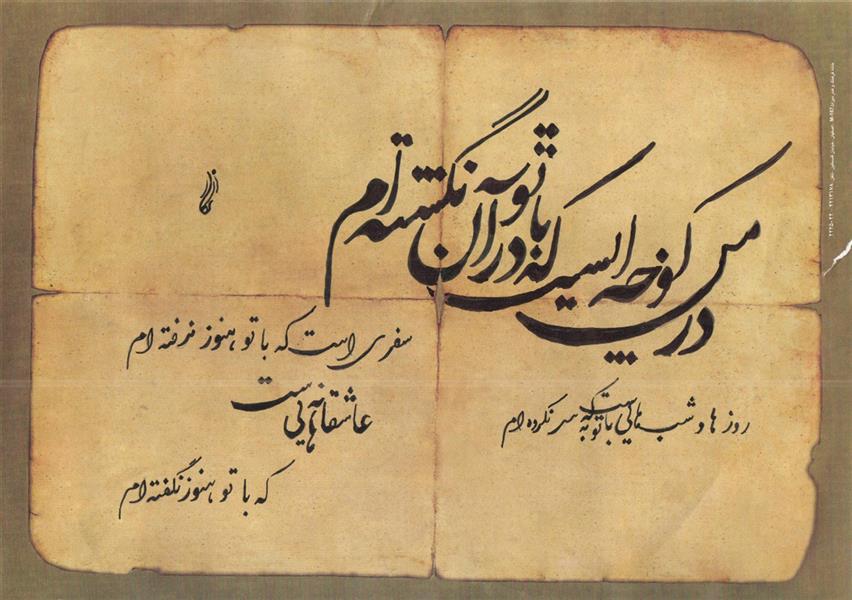 در من کوچه ایست که با تو در آن نگشته ام
سفری است که با تو هنوز نرفته ام
روز ها و شب هایی است که با تو به سر نکرده ام
عاشقانه هایی ست
که با تو هنوز نگفته ام